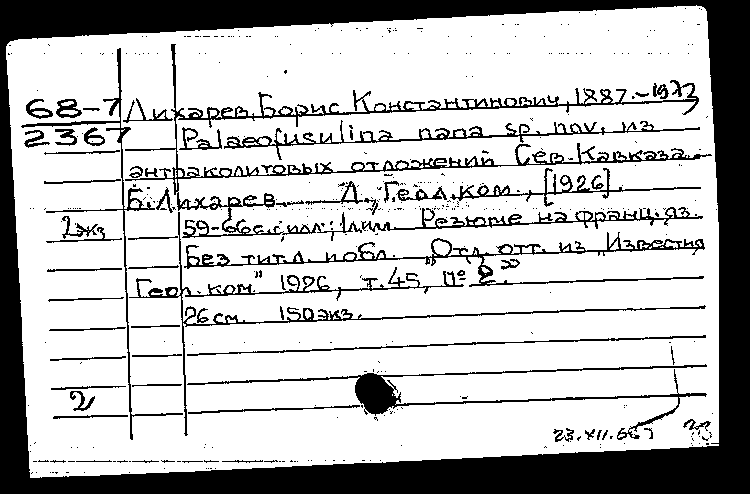 68-7 Лихарев, Борис Константинович, 1887.-1973
2367 Palaeofusulina nana sp. nov. из
антраколитовых отложений Сев. Кавказа.
Б. Лихарев. Л., Геол. ком., [1926].
2экз 59-66с.с илл.; 1л.илл. Резюме на франц. яз.
Без тит.л. и обл. "Отд. отт. из "Известия
Геол. ком" 1926, т.45, № 2."
26 см. 150 экз.
2
23.XII.66